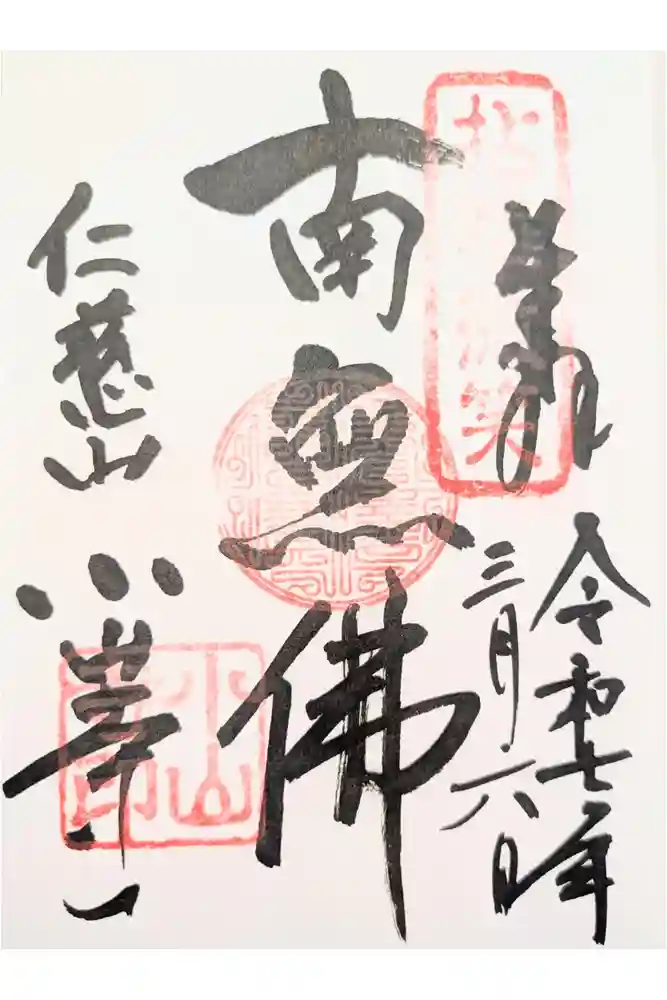 拈華微笑
奉拝
令和七年
三月六日
南無佛
仁慈山